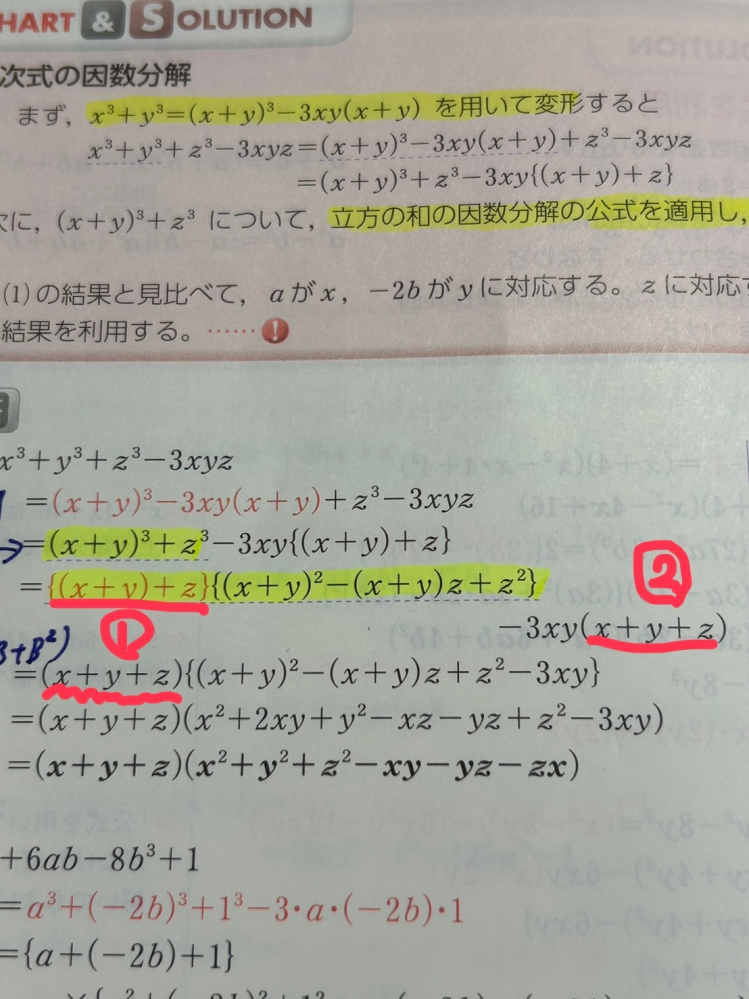 HART & SOLUTION
次式の因数分解
まず，x³+y³=(x+y)³−3xy(x+y) を用いて変形すると
x³+y³+z³−3xyz=(x+y)³−3xy(x+y)+z³−3xyz
=(x+y)³+z³−3xy{(x+y)+z}
次に，(x+y)³+z³ について，立方の和の因数分解の公式を適用し，
(1)の結果と見比べて，aがx，−2bがyに対応する。zに対応
結果を利用する。……!
x³+y³+z³−3xyz
=(x+y)³−3xy(x+y)+z³−3xyz
→=(x+y)³+z³−3xy{(x+y)+z}
={(x+y)+z}{(x+y)²−(x+y)z+z²}
② 
−3xy(x+y+z)
①
+B²)
=(x+y+z){(x+y)²−(x+y)z+z²−3xy}
=(x+y+z)(x²+2xy+y²−xz−yz+z²−3xy)
=(x+y+z)(x²+y²+z²−xy−yz−zx)
+6ab−8b³+1
=a³+(−2b)³+1³−3·a·(−2b)·1
={a+(−2b)+1}